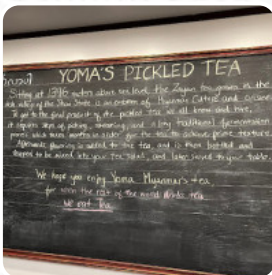 YOMA'S PICKLED TEA
Sitting at 1396 meters above sea level, the Zayan tea grown in the
rich valley of the Shan State is an emblem of Myanmar Culture and cuisine
To get to the final product of the pickled tea we all know and love,
it requires steps of picking, steaming, and a long traditional fermentation
process which takes months in order for the tea to achieve prime texture.
Afterwards flavouring is added to the tea, and is then bottled and
shipped to be mixed into your Tea Salad, and later served to your table.
We hope you enjoy Yoma Myanmar's tea
for when the rest of the world drinks tea
we eat Tea